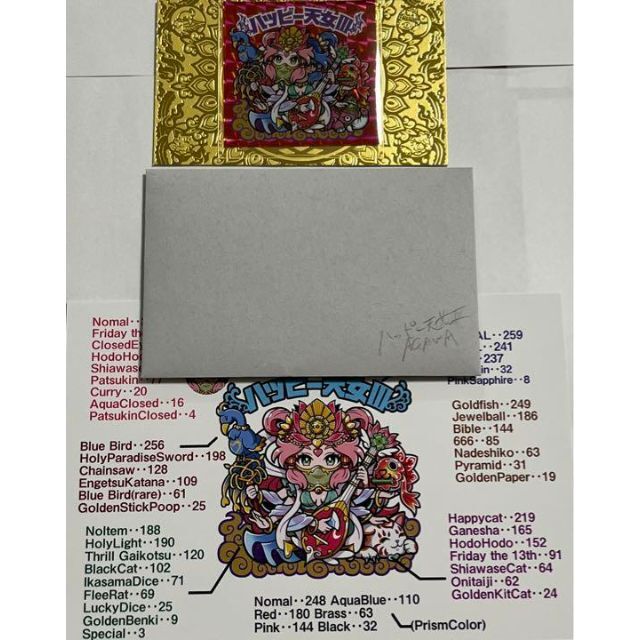 ハッピー天女III
ハッピー天女II
AQUA
Nomal
Friday the
ClosedEy
HodoHodo
Shiawase
Patsukin
Curry‥20
AquaClosed‥16
PatsukinClosed‥4
AL‥259
L‥241
237
in‥32
PinkSapphire‥8
ハッピー天女III
Goldfish‥249
Jewelball‥186
Bible‥144
666‥85
Nadeshiko‥63
Pyramid‥31
GoldenPaper‥19
Blue Bird‥256
HolyParadiseSword‥198
Chainsaw‥128
EngetsuKatana‥109
Blue Bird(rare)‥61
GoldenStickPoop‥25
NoItem‥188
HolyLight‥190
Thrill Gaikotsu‥120
BlackCat‥102
IkasamaDice‥71
FleeRat‥69
LuckyDice‥25
GoldenBenki‥9
Special‥3
Happycat‥219
Ganesha‥165
HodoHodo‥152
Friday the 13th‥91
ShiawaseCat‥64
Onitaiji‥62
GoldenKitCat‥24
Nomal‥248 AquaBlue‥110
Red‥180 Brass‥63
Pink‥144 Black‥32
(PrismColor)